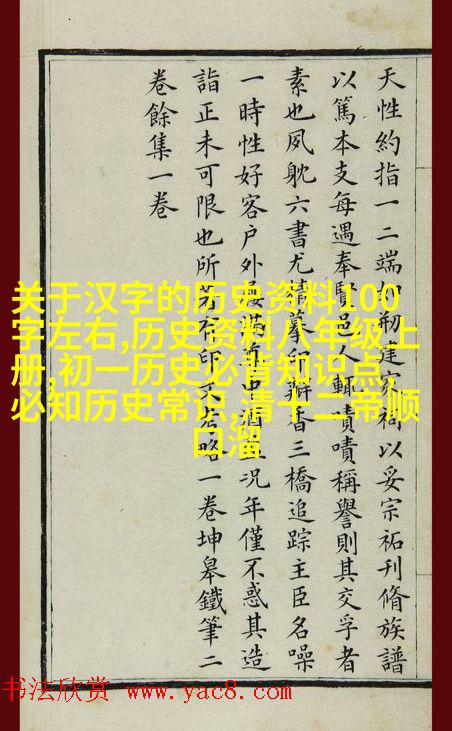 天性約指一二端如剏建家祠以妥宗祏刊脩族譜
以篤本支每遇奉賢邑人輒嘖嘖稱譽則其交孚者
素也夙躭六書尤精摹印瓣香三橋追踪主臣名噪
一時性好客户外屨滿尊中酒盈况年僅不惑其造
詣正未可限也所著有印文考略一卷坤皋鐵筆二
卷餘集一卷
关于汉字的历史资料100
字左右,历史资料八年级上
册,初一历史必背知识点,
必知历史常识,清十二帝顺
口溜
书法欣赏 www.yac8.com